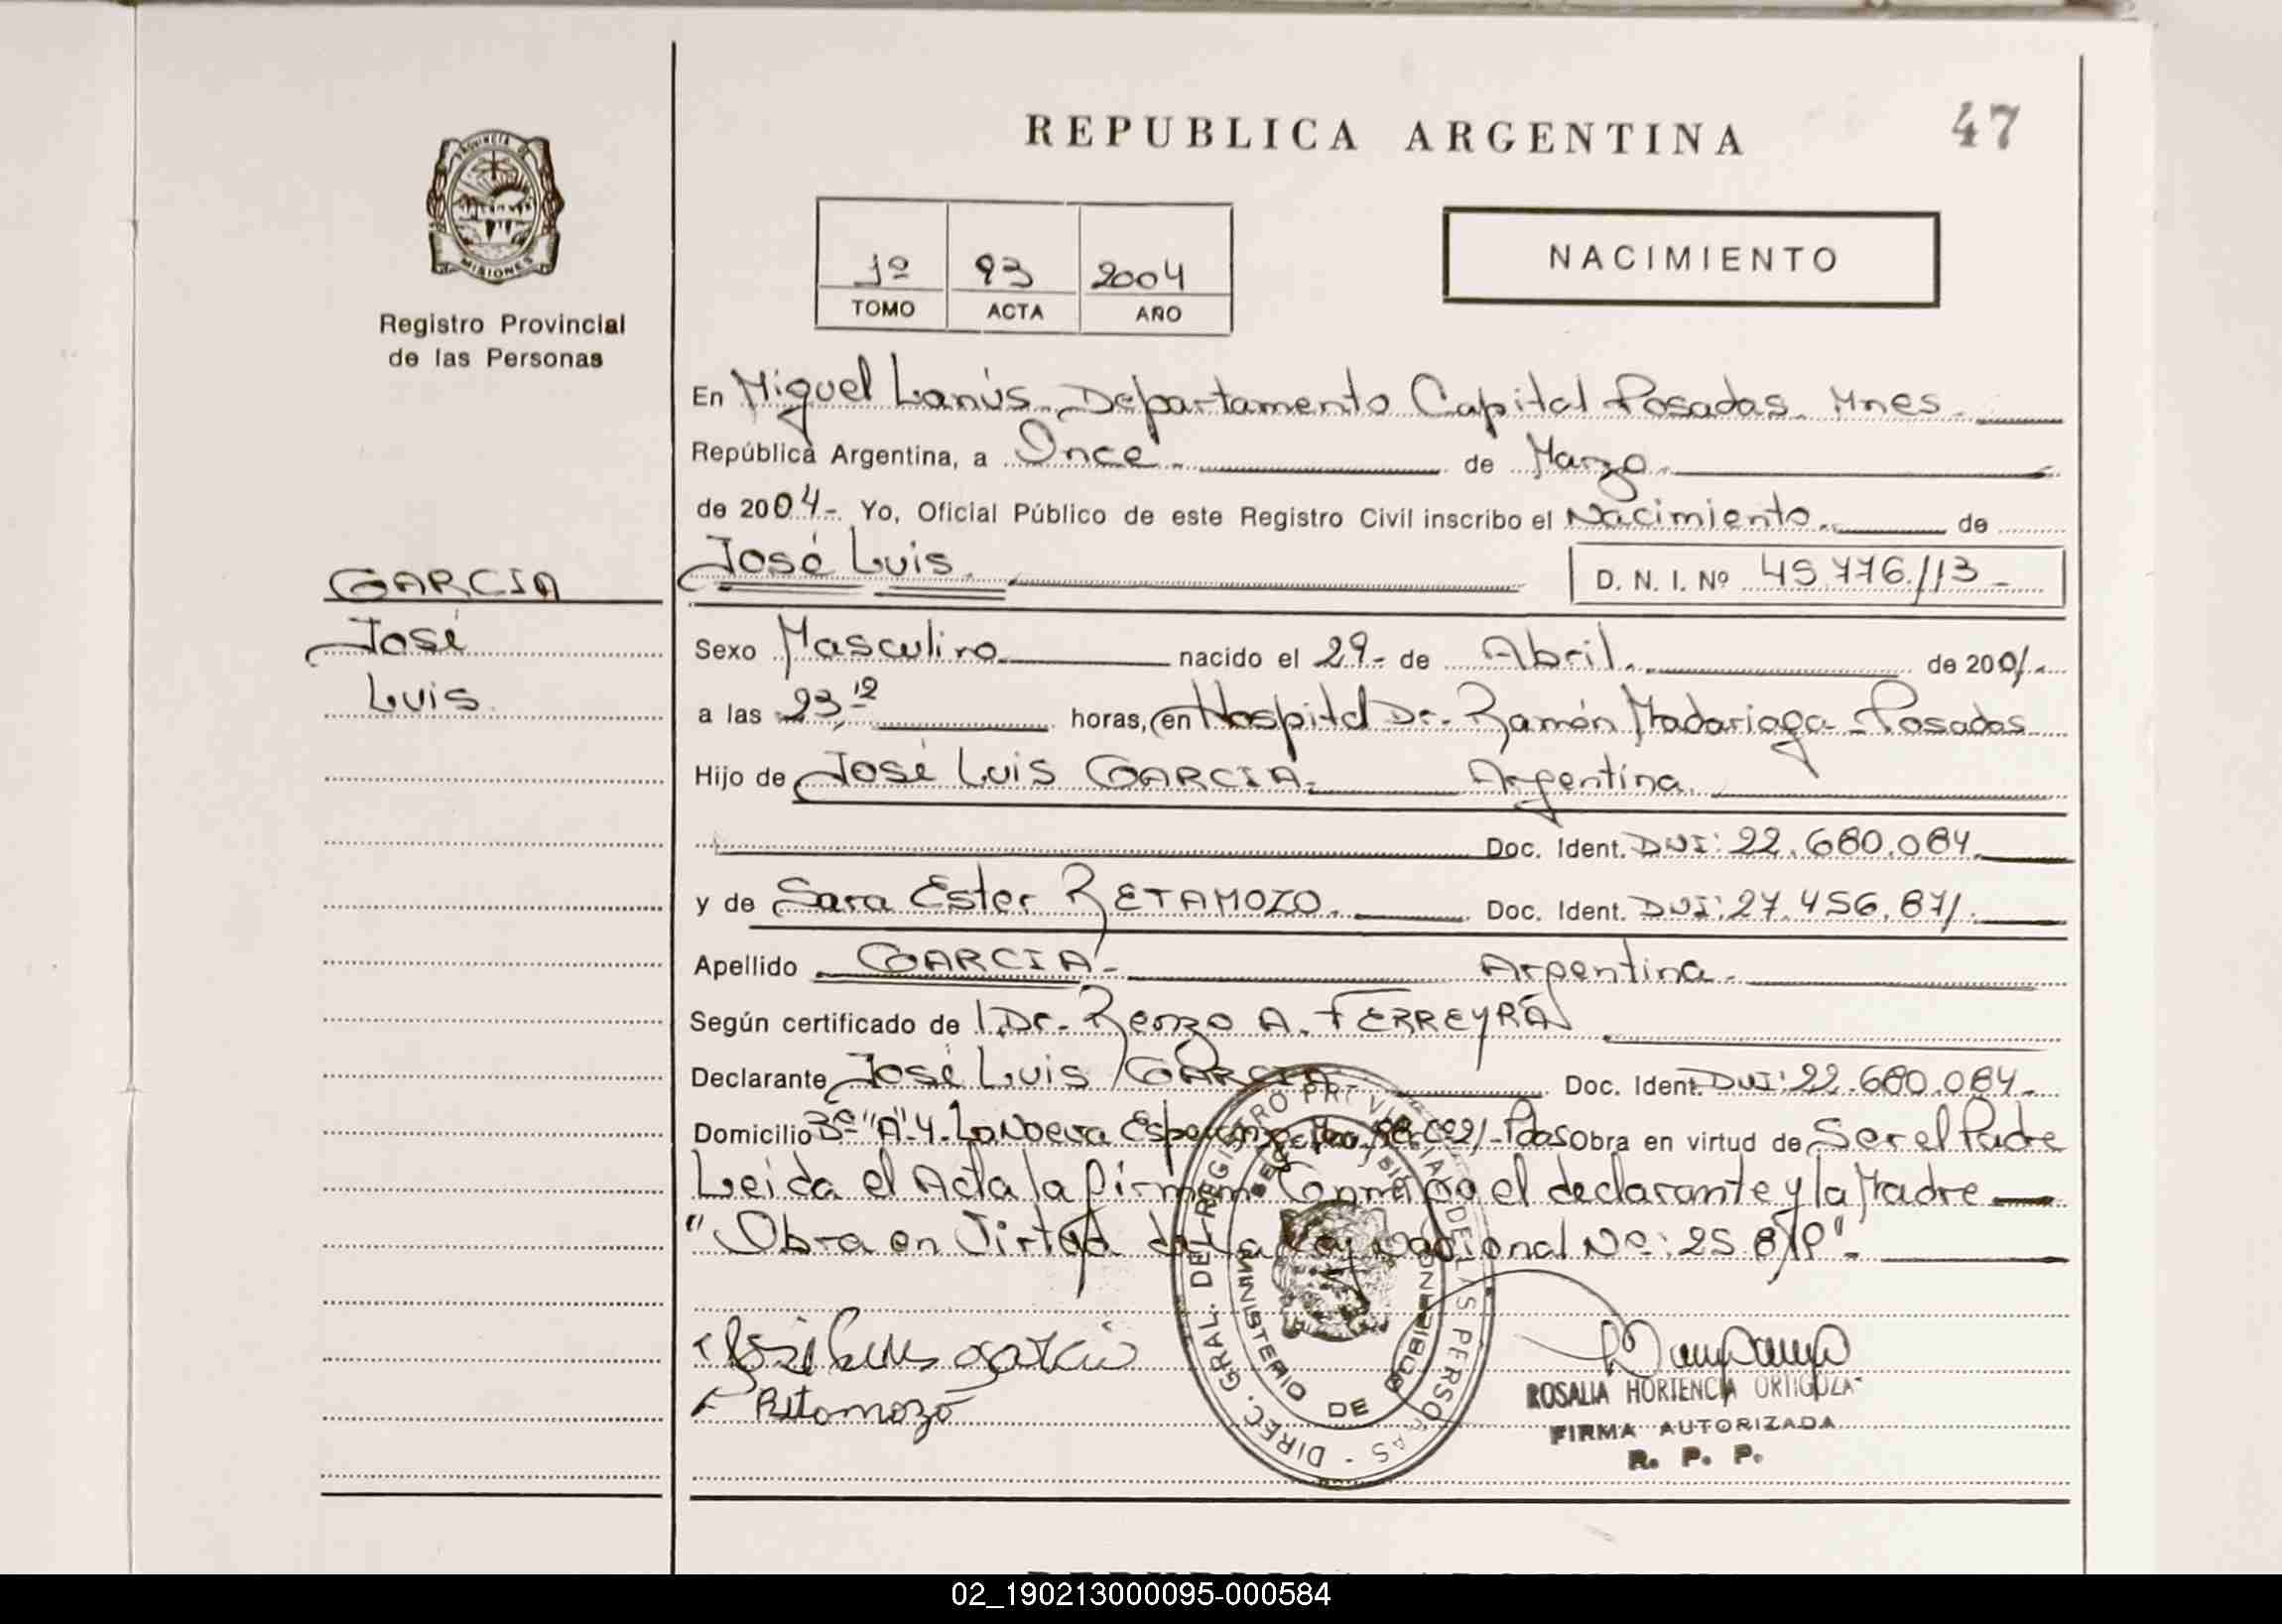 REPUBLICA ARGENTINA
47
PROVINCIA DE
MISIONES
Registro Provincial
de las Personas
1º 93 2004
TOMO ACTA AÑO
NACIMIENTO
En Miguel Lanús. Departamento Capital Posadas. Mnes.
República Argentina, a Once. de Marzo.
de 2004.- Yo, Oficial Público de este Registro Civil inscribo el Nacimiento. de
José Luis.
D. N. I. Nº 45.776.113-
GARCIA
José
Luis.
Sexo Masculino nacido el 29.- de Abril. de 2001.-
a las 23,12 horas, en Hospital Dr. Ramón Madariaga - Posadas
Hijo de José Luis GARCIA. Argentina.
Doc. Ident. DNI: 22.680.084.
y de Sara Ester RETAMOZO. Doc. Ident. DNI: 27.456.871.
Apellido GARCIA.- Argentina.-
Según certificado de Dr. Renzo A. FERREYRA
Declarante José Luis GARCIA.- Doc. Ident. DNI: 22.680.084.-
Domicilio Bº "A"-4- La Nueva Esperanza Pdas Obra en virtud de Ser el Padre
Leida el Acta la firman Conmigo el declarante y la Madre
"Obra en Virtud de la Ley Nacional Nº: 25.819".
José Luis García
Retamozo
DIREC. GRAL. DEL REGISTRO PROVINCIAL DE LAS PERSONAS
MINISTERIO DE GOBIERNO
ROSALIA HORTENCIA ORTIGOZA
FIRMA AUTORIZADA
R. P. P.
02_190213000095-000584